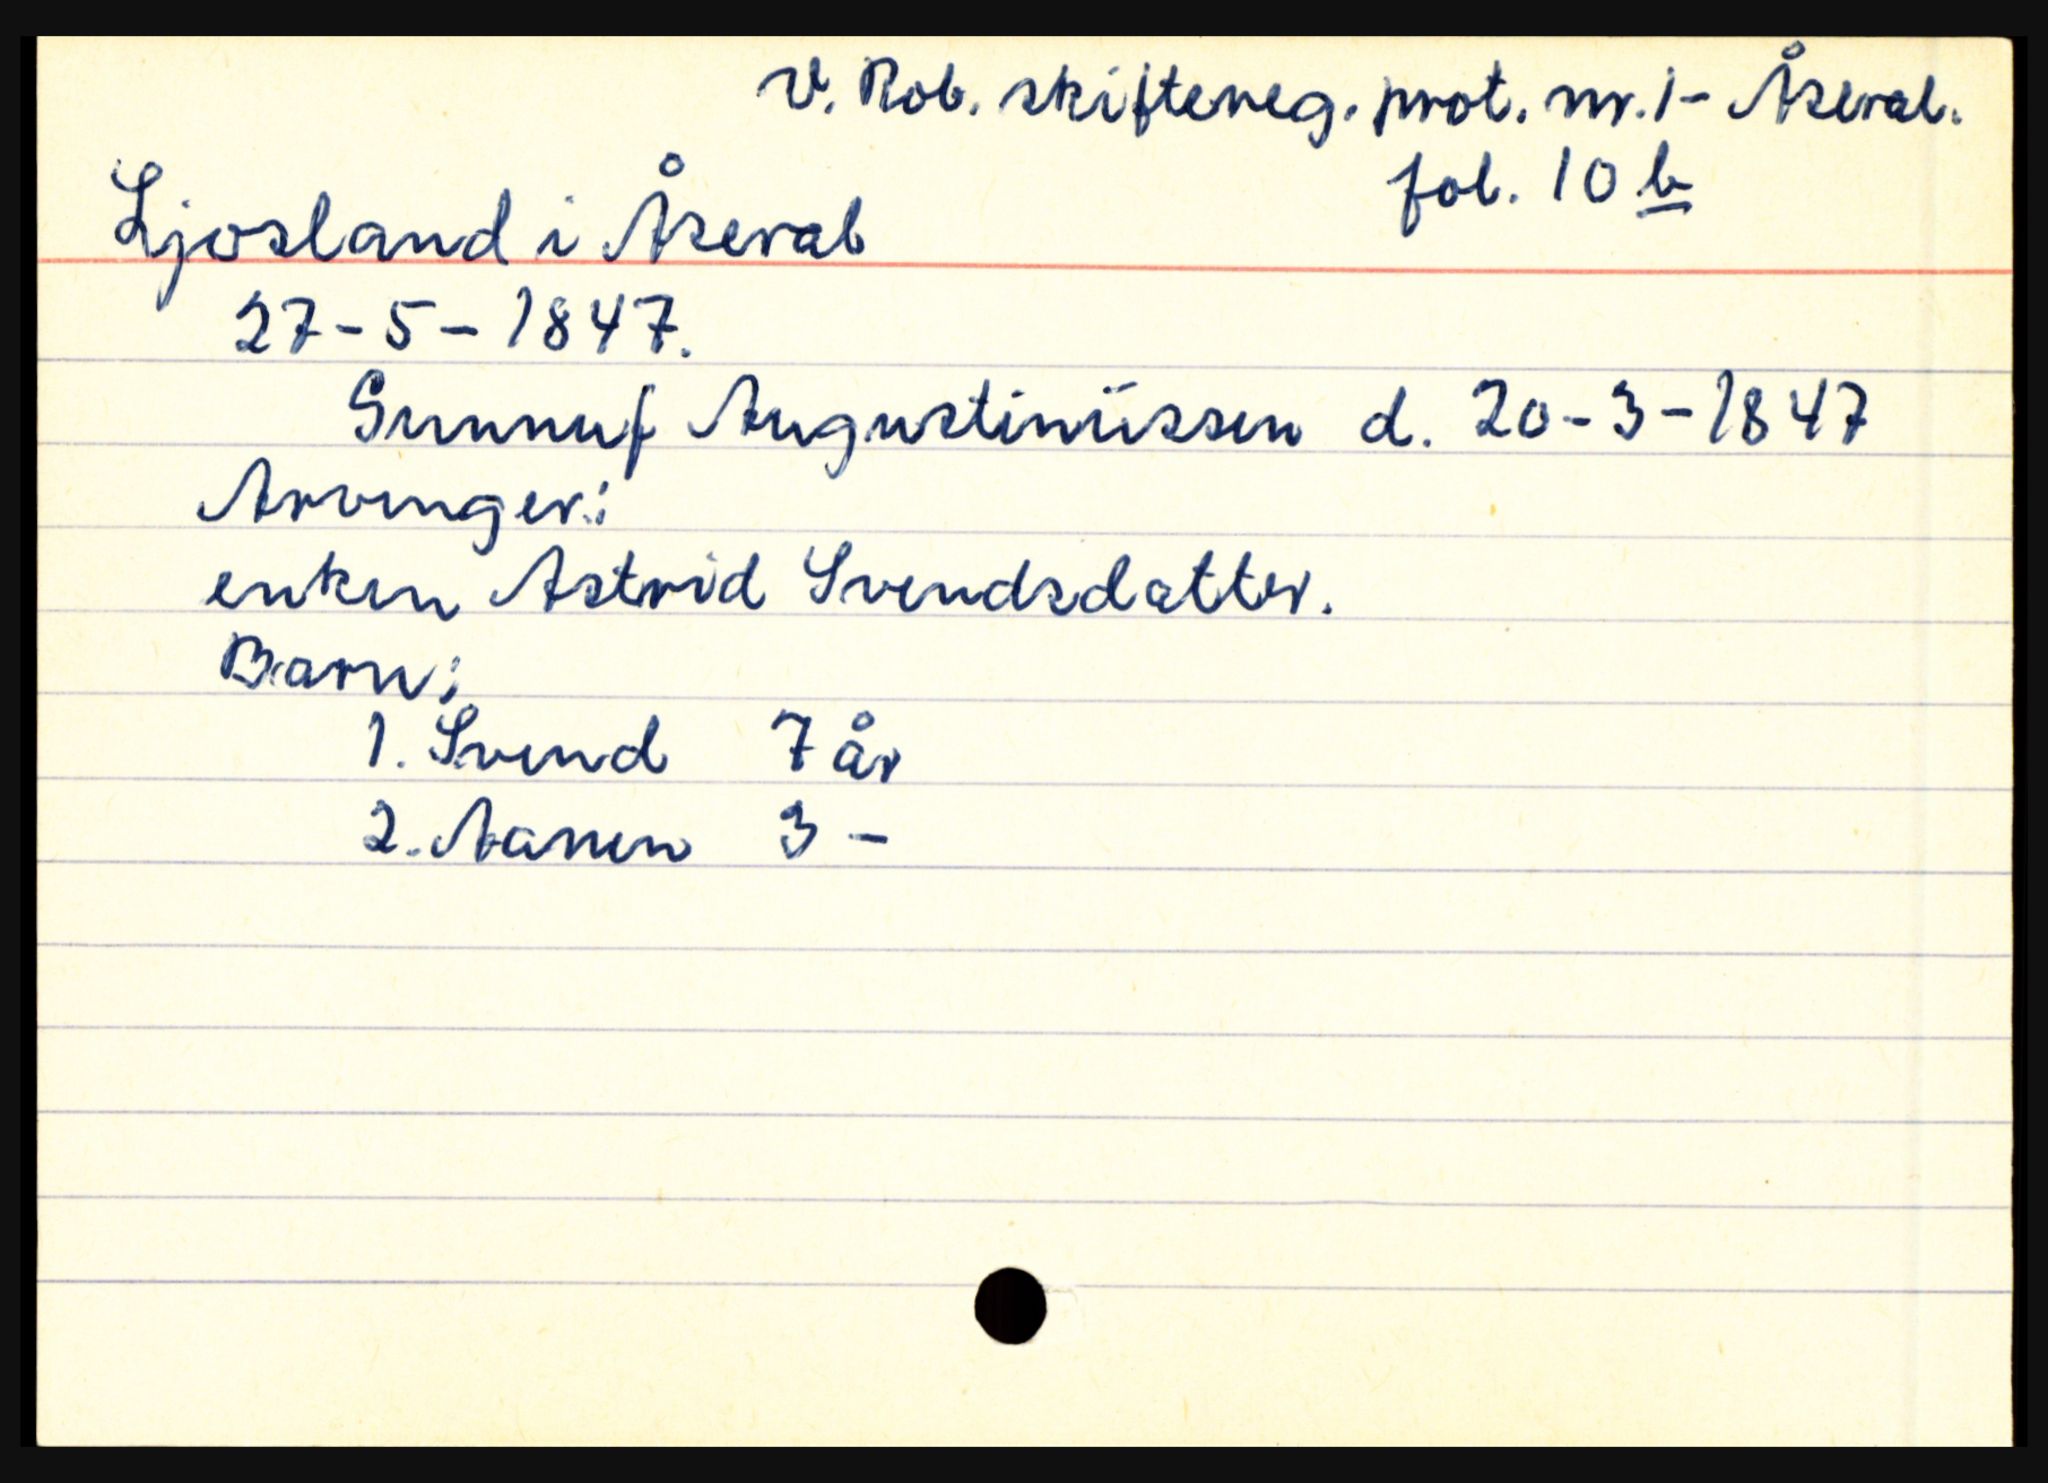 V. Rob. skiftereg. prot. nr. 1 - Åseral.
fol. 10 b
Ljosland i Åseral
27-5-1847.
Gunnuf Augustinüssen d. 20-3-1847
Arvinger:
enken Astrid Svendsdatter.
Barn:
1. Svend 7 år
2. Aanen 3 -